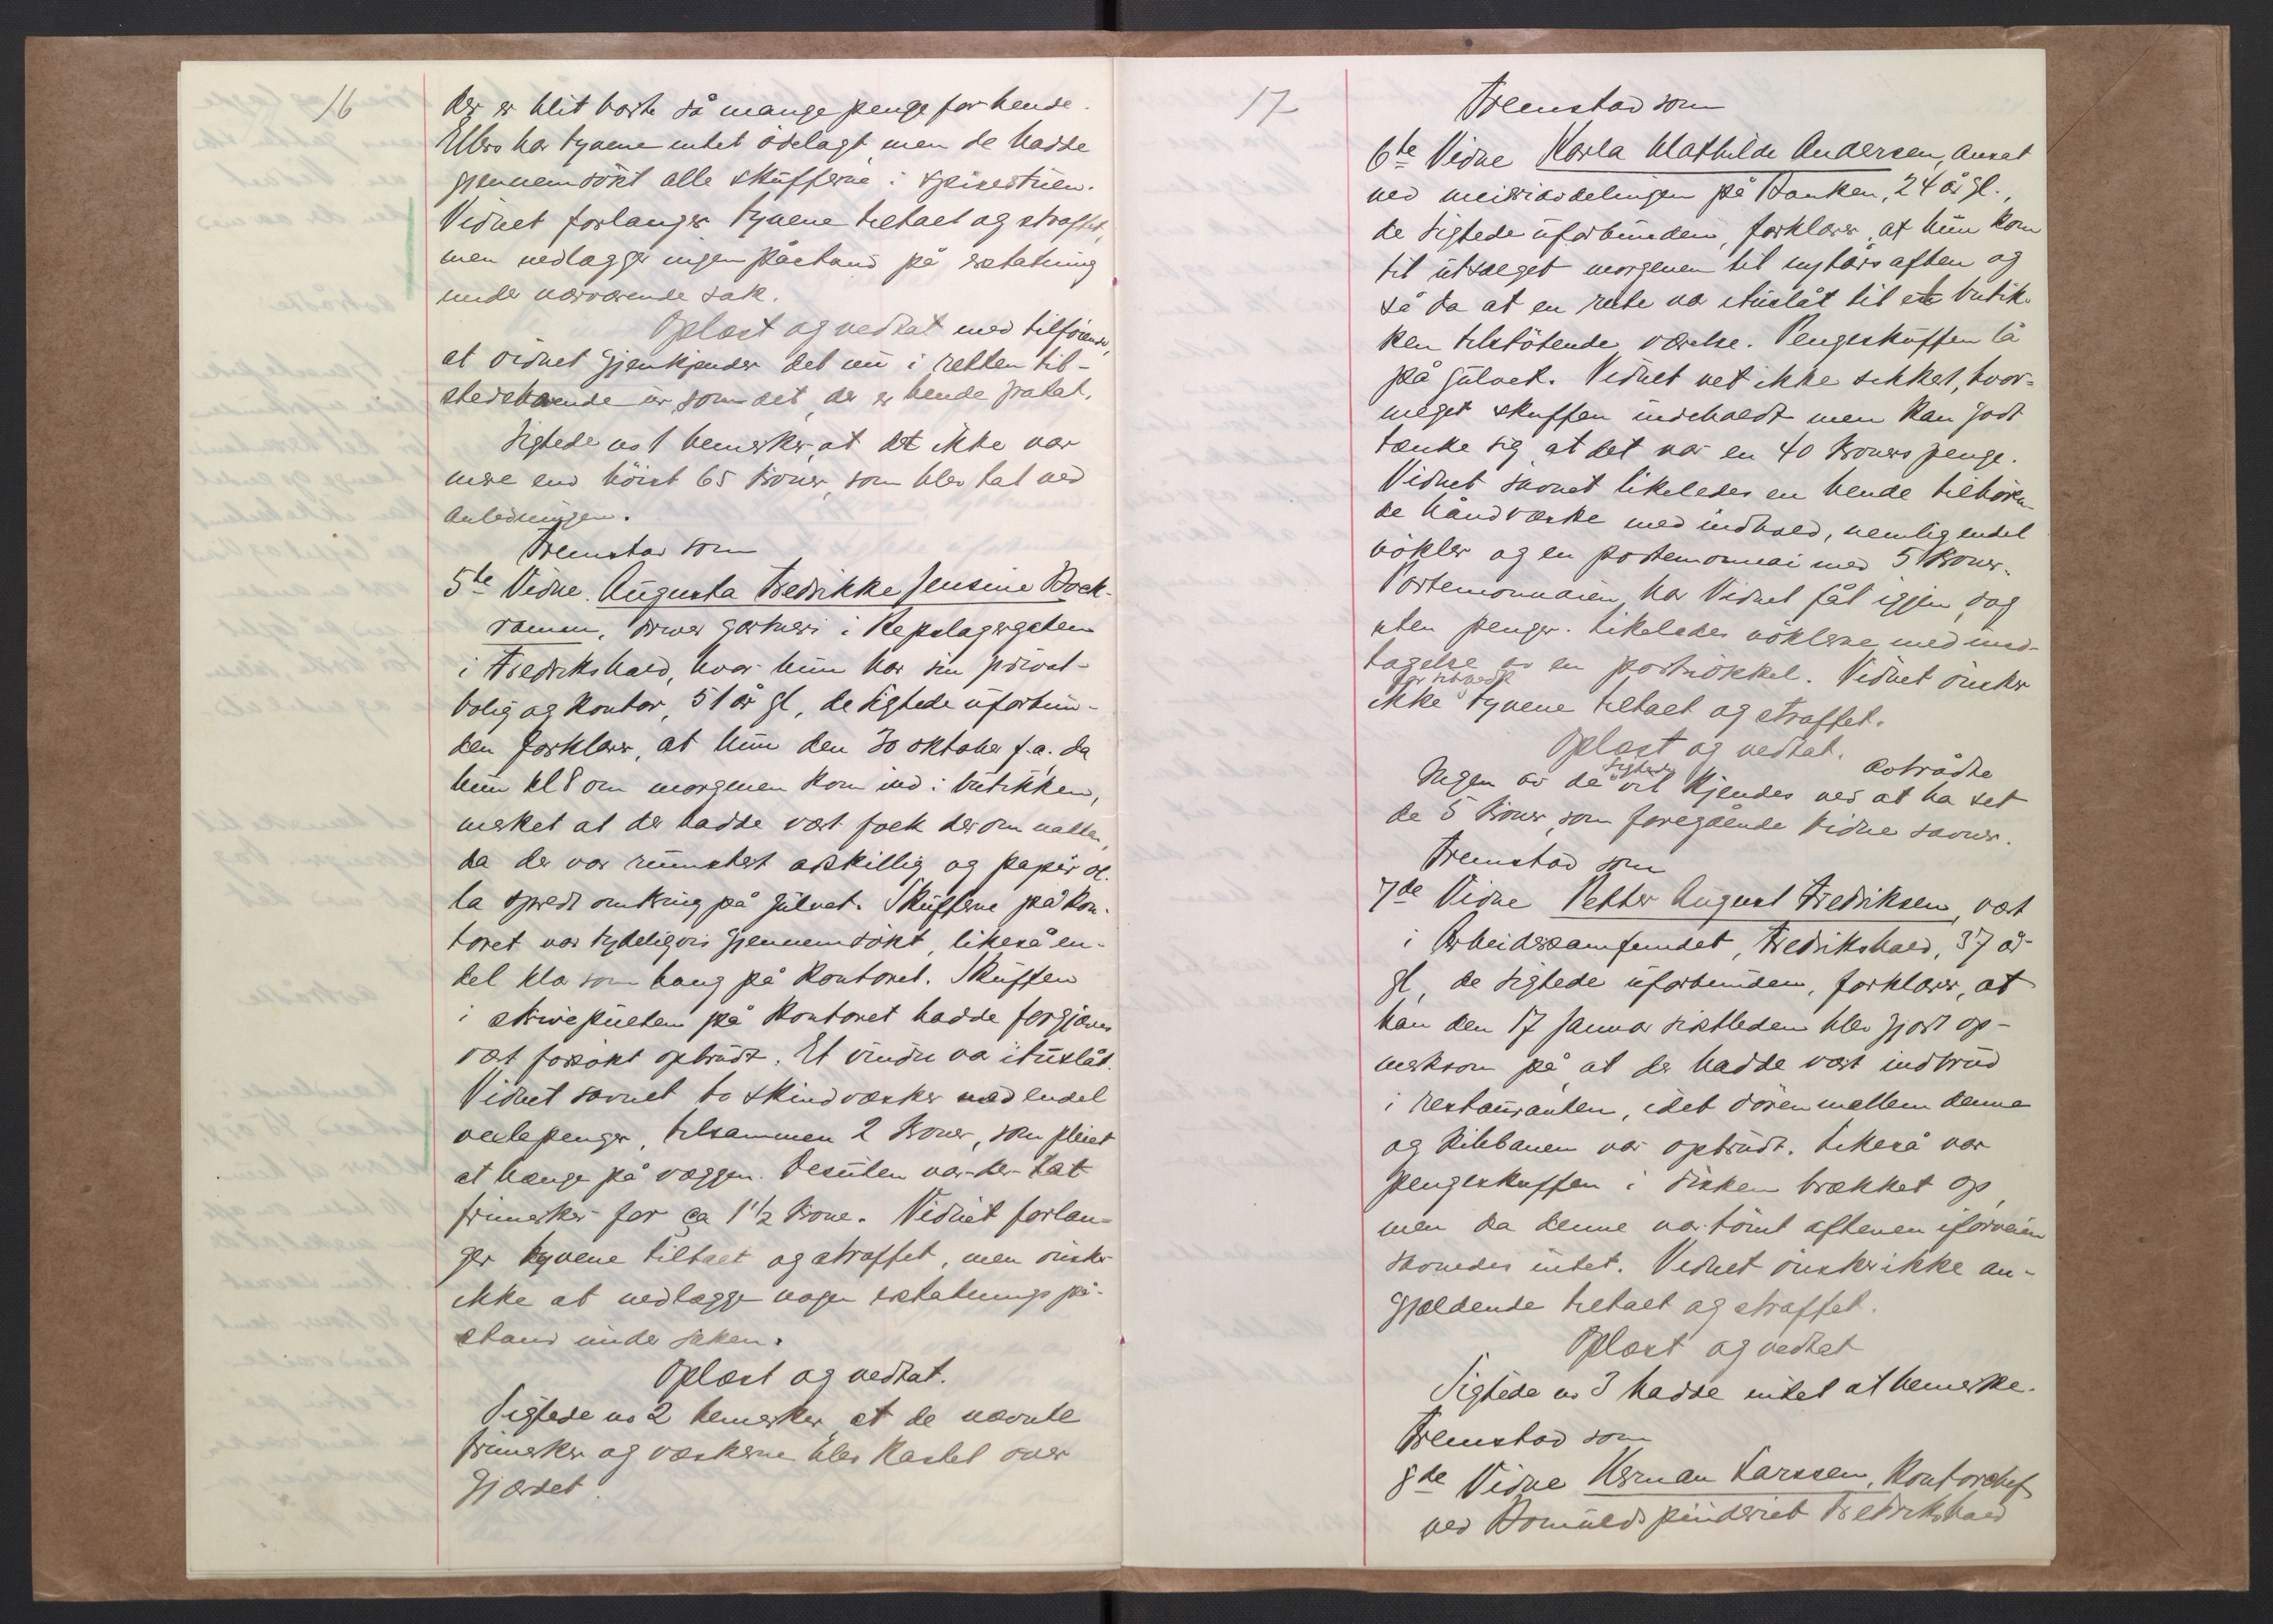 16
der er blit borte så mange penge for hende.
Ellers har tyvene intet ödelagt, men de hadde
gjennemsökt alle skufferne i spisestuen.
Vidnet forlanger tyvene tiltalt og straffet,
men nedlægger ingen påstand på erstatning
under nærværende sak.
Oplæst og vedtat med tilföiende,
at vidnet gjenkjender det nu i retten til-
stedeværende ur som det, der er hende fratat.
Sigtede no 1 bemerker, at det ikke var
mere end höist 65 kroner, som blev tat ved
anledningen.
Fremstod som
5te Vidne Augusta Fredrikke Jensine Bock-
ramm, driver gartneri i Repslagergaten
i Fredrikshald, hvor hun har sin privat-
bolig og kontor, 51 år gl, de sigtede uforbun-
den forklarer, at hun den 30 oktober f.a. da
hun kl 8 om morgenen kom ind i butikken,
merket at der hadde vært folk der om natten,
da der var rumstert adskillig og papir ol.
la spredt omkring på gulvet. Skufferne på kon-
toret var tydeligvis gjennemsökt, likeså en-
del klær som hang på kontoret. Skuffen
i skrivepulten på kontoret hadde forgjæves
vært forsökt opbrudt. Et vindu var ituslåt.
Vidnet savnet to skindvæsker med endel
vekslepenger, tilsammen 2 kroner, som pleiet
at hænge på væggen. Desuten var der tat
frimerker for ca 1½ krone. Vidnet forlan-
ger tyvene tiltalt og straffet, men önsker
ikke at nedlægge nogen erstatningspå-
stand under saken.
Oplæst og vedtat.
Sigtede no 2 bemerker, at de nævnte
frimerker og væskerne blev kastet over
gjærdet.
17
Fremstod som
6te Vidne Karla Mathilde Andersen, ansat
ved meieriavdelingen på Banken, 24 år gl.,
de sigtede uforbunden, forklarer, at hun kom
til utsalget morgenen til nytårsaften og
så da at en rute var ituslåt til et butik-
ken tilstötende værelse. Pengeskuffen lå
på gulvet. Vidnet vet ikke sikkert, hvor-
meget skuffen indeholdt men kan godt
tænke sig, at det var en 40 kroners penge.
Vidnet savnet likeledes en hende tilhören-
de håndvæske med indhold, nemlig endel
nökler og en portemonnai med 5 kroner.
Portemonnaien har Vidnet fåt igjen, dog
uten penger. Likeledes nöklerne med und-
tagelse av en portnökkel. Vidnet önsker
for sit vedk
ikke tyvene tiltalt og straffet.
Oplæst og vedtat.
Avtrådte
Ingen av de sigtede vil kjendes ved at ha set
de 5 kroner, som foregående Vidne savner.
Fremstod som
7de Vidne Petter August Fredriksen, vært
i Arbeidersamfundet, Fredrikshald, 37 år
gl, de sigtede uforbunden, forklarer, at
han den 17 januar sistleden blev gjort op-
merksom på, at der hadde vært indbrud
i restauranten, idet dören mellem denne
og kilebanen var opbrudt. Likeså var
pengeskuffen i disken brækket op,
men da denne var tömt aftenen iforveien
savnedes intet. Vidnet önsker ikke an-
gjældende tiltalt og straffet.
Oplæst og vedtat
Sigtede no 3 hadde intet at bemerke.
Fremstod som
8de Vidne Herman Larssen, kontorchef
ved Bomuldspinderiet Fredrikshald